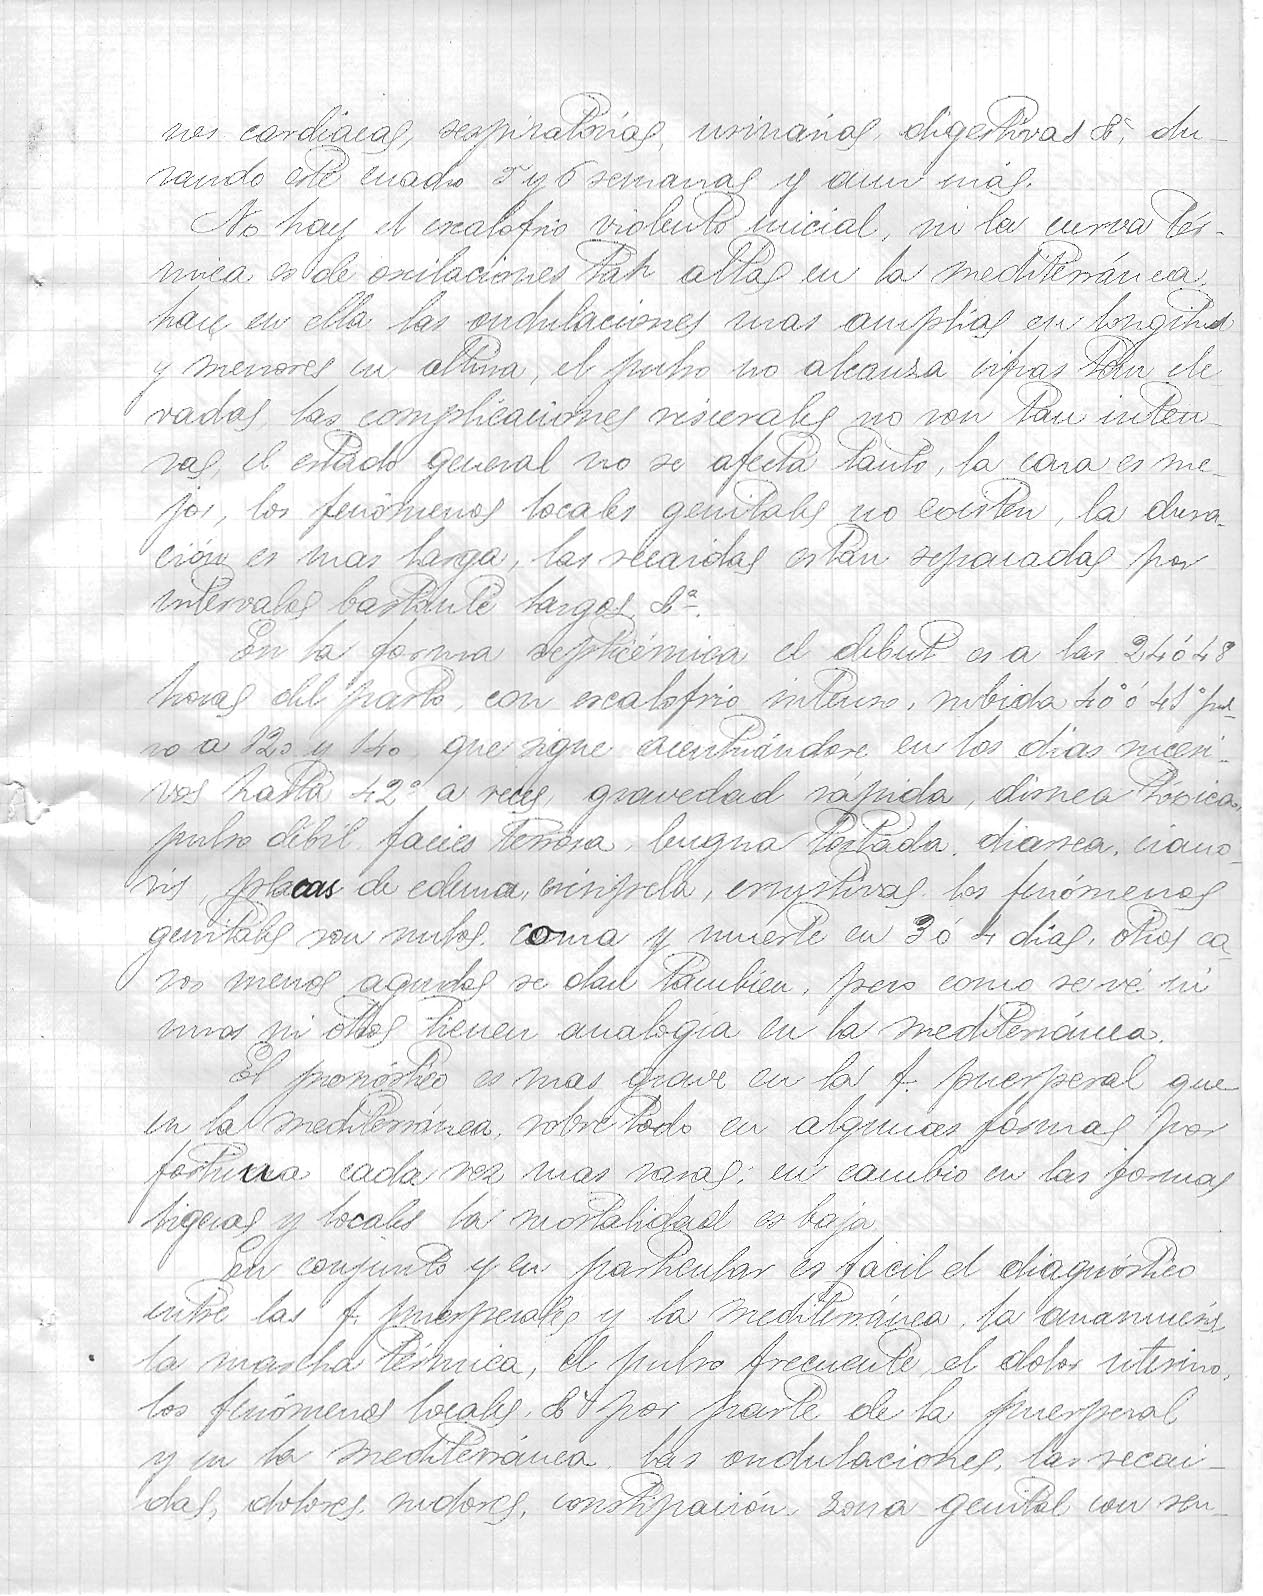 nes cardiacas, respiratorias, urinarias, digestivas &ª, du-
rando este cuadro 5 y 6 semanas y aun más.
No hay el escalofrio violento inicial, ni la curva tér-
mica es de oscilaciones tan altas en la mediterránea,
hace en ella las ondulaciones mas amplias en longitud
y menores en altura, el pulso no alcanza cifras tan ele
vadas, las complicaciones viscerales no son tan inten-
sas, el estado general no se afecta tanto, la cara es me-
jor, los fenómenos locales genitales no existen, la dura-
ción es mas larga, las recaidas estan separadas por
intervalos bastante largos, &ª.
En la forma septicémica el debut es a las 24 ó 48
horas del parto, con escalofrio intenso, subida 40° ó 41° pul-
so a 120 y 140, que sigue acentuándose en los dias sucesi-
vos hasta 42° a veces, gravedad rápida, disnea tóxica,
pulso débil, facies terrosa, lengua tostada, diarrea, ciano-
sis, placas de edema, erisipela, eruptivas, los fenómenos
genitales son nulos, coma y muerte en 3 ó 4 dias, otros ca-
sos menos agudos se dan tambien, pero como se vé ni
unos ni otros tienen analogía en la mediterránea.
El pronóstico es mas grave en la f. puerperal que
en la mediterránea, sobre todo en algunas formas por
fortuna cada vez mas raras; en cambio en las formas
ligeras y locales la mortalidad es baja.
En conjunto y en particular es facil el diagnostico
entre las f. puerperales y la mediterránea, la anamnesis,
la marcha térmica, el pulso frecuente, el dolor uterino,
los fenómenos locales, &ª por parte de la puerperal
y en la mediterránea, las ondulaciones, las recai-
das, dolores, sudores, constipación, zona genital con sen-